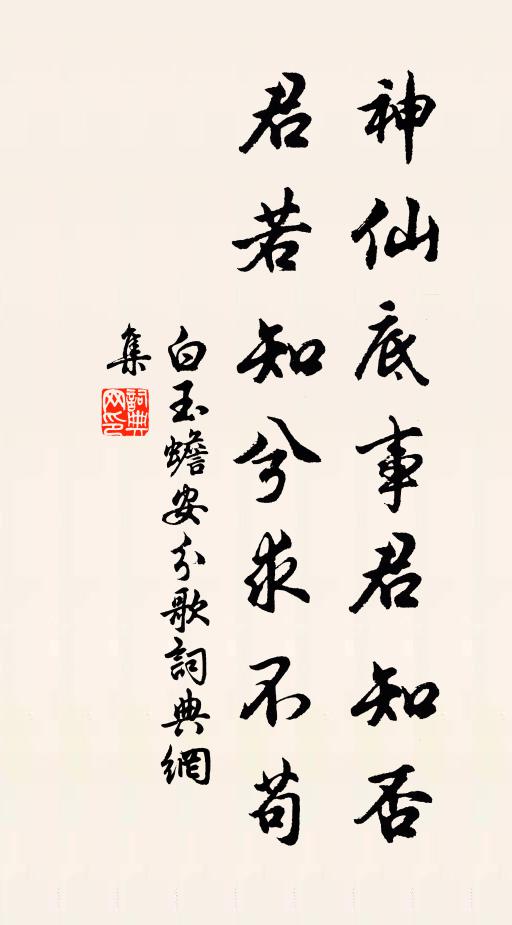 神仙底事君知否
君若知兮求不苟
白玉蟾安分歌詞典網
集
詞典
网印